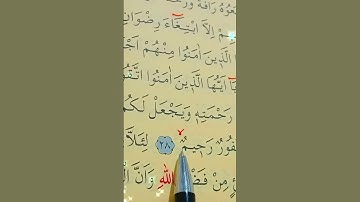 رَأْفَةً وَرَحْ
اِلَّا ابْتِغَٓاءَ رِضْوَانِ
الَّذ۪ينَ اٰمَنُوا مِنْهُمْ اَجْ
يَٓا اَيُّهَا الَّذ۪ينَ اٰمَنُوا اتَّقُو
رَحْمَتِه۪ وَيَجْعَلْ لَكُمْ
فُورٌ رَح۪يمٌۚ ﴿٢٨﴾ لِئَلَّا
مِنْ فَضْلِ اللّٰهِ وَاَنَّ الْ